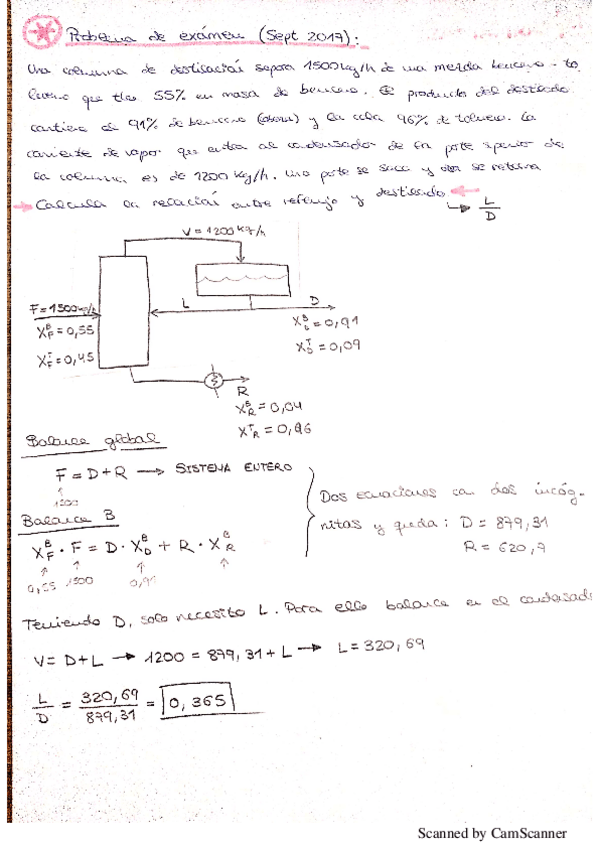 Problema de examen (Sept 2017):
Una columna de destilación separa 1500 kg/h de una mezcla benceno - to
lueno que tiene 55% en masa de benceno. El producto del destilado
contiene un 91% de benceno y la cola 96% de tolueno. La
corriente de vapor que entra al condensador de la parte superior de
la columna es de 1200 kg/h. Una parte se saca y otra se retorna
Calcula la relación entre reflujo y destilado. → L/D
V = 1200 kg/h
F = 1500 kg/h
L
D
X_F^B = 0,55
X_D^B = 0,91
X_F^T = 0,45
X_D^T = 0,09
R
X_R^B = 0,04
X_R^T = 0,96
Balance global
F = D + R → SISTEMA ENTERO
1500
Dos ecuaciones con dos incóg-
nitas y queda: D = 879,31
R = 620,7
Balance B
X_F^B · F = D · X_D^B + R · X_R^B
0,55 1500 0,91
Teniendo D, solo necesito L. Para ello balance en el condensado
V = D + L → 1200 = 879,31 + L → L = 320,69
L/D = 320,69/879,31 = 0,365
Scanned by CamScanner